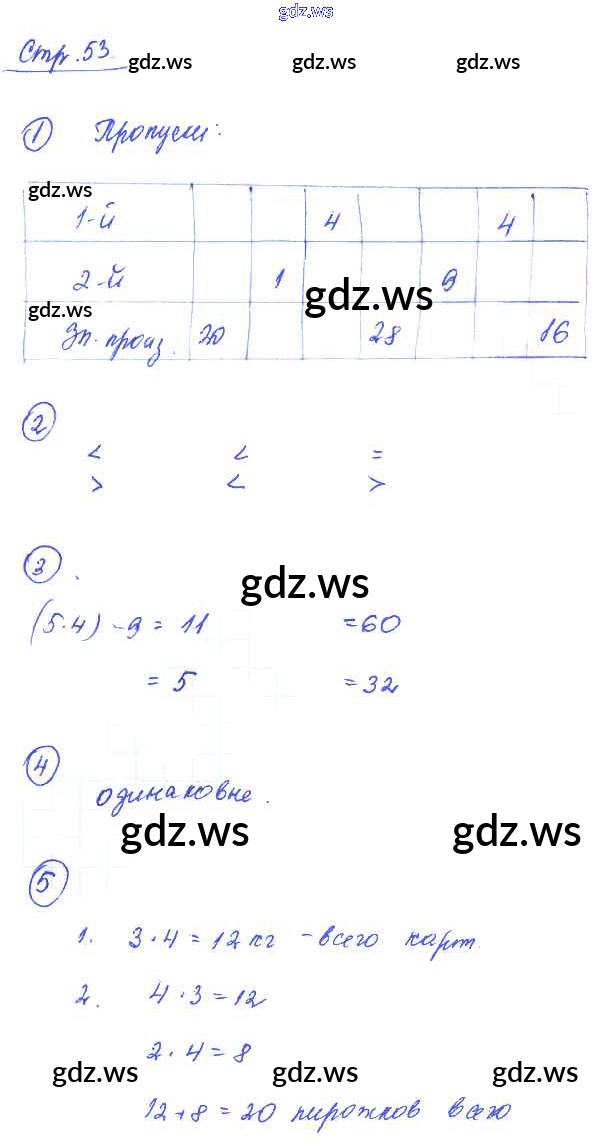 gdz.ws
Стр. 53 gdz.ws gdz.ws gdz.ws
1 Пропуски:
gdz.ws
1-й 4 4
2-й 1 9
gdz.ws
gdz.ws
Зн. произ. 20 28 16
2
< < =
> < >
3.
gdz.ws
(5·4) - 9 = 11 = 60
= 5 = 32
4
одинаковне.
gdz.ws gdz.ws
5
1. 3·4 = 12 кг - всего карт.
2. 4·3 = 12
2·4 = 8
gdz.ws gdz.ws gdz.ws
12+8 = 20 пирожков всего